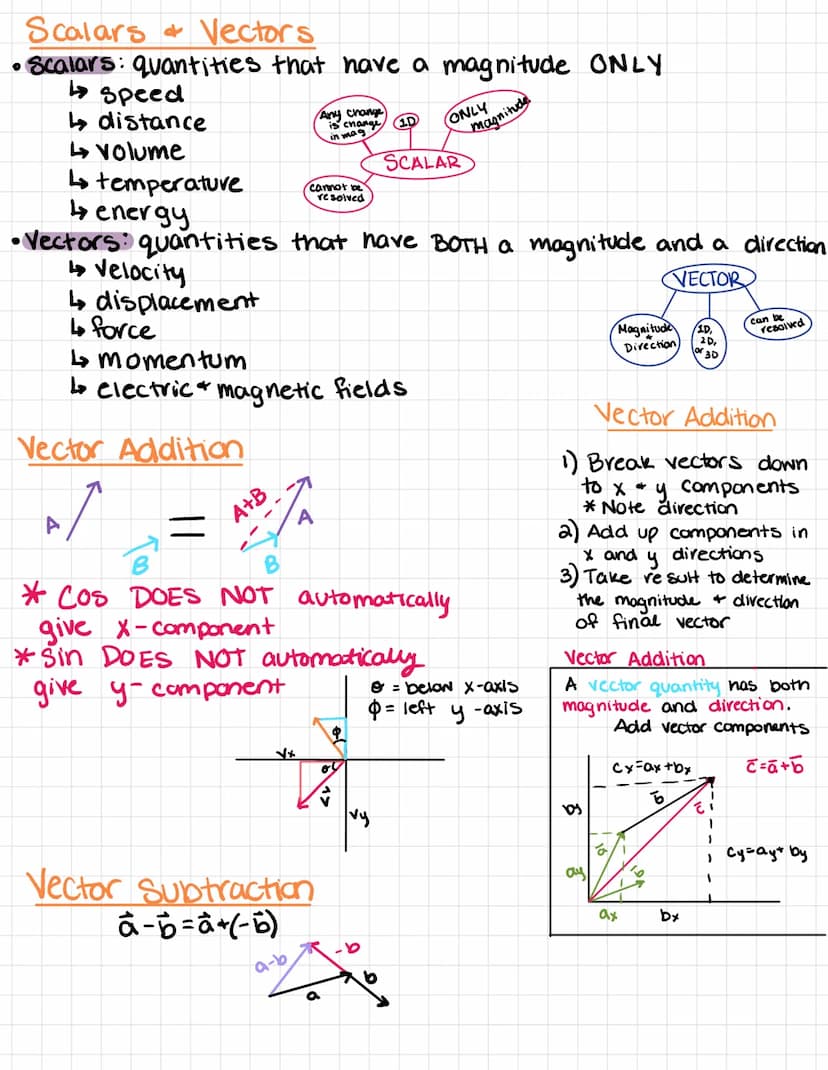 Scalars + Vectors
• Scalars: quantities that have a magnitude ONLY
↳ speed
↳ distance
↳ volume
↳ temperature
↳ energy
Any change
is change
in mag
1D
ONLY
magnitude
SCALAR
cannot be
resolved
• Vectors: quantities that have BOTH a magnitude and a direction
↳ velocity
↳ displacement
↳ force
↳ momentum
↳ electric + magnetic fields
VECTOR
Magnitude
+
Direction
1D,
2D,
or 3D
can be
resolved
Vector Addition
A
B
=
A+B
A
B
* Cos DOES NOT automatically
give x-component
* Sin DOES NOT automatically
give y-component
θ = below x-axis
Φ = left y-axis
Φ
Vx
θ
v⃗
Vy
Vector Addition
1) Break vectors down
to x + y components
* Note direction
2) Add up components in
x and y directions
3) Take result to determine
the magnitude + direction
of final vector
Vector Addition
A vector quantity has both
magnitude and direction.
Add vector components
Cx=ax+bx
c̄=ā+b̄
by
b̄
c̄
ā
b̄
ay
Cy=ay+by
ax
bx
Vector Subtraction
a⃗-b⃗=a⃗+(-b⃗)
a-b
-b
b
a